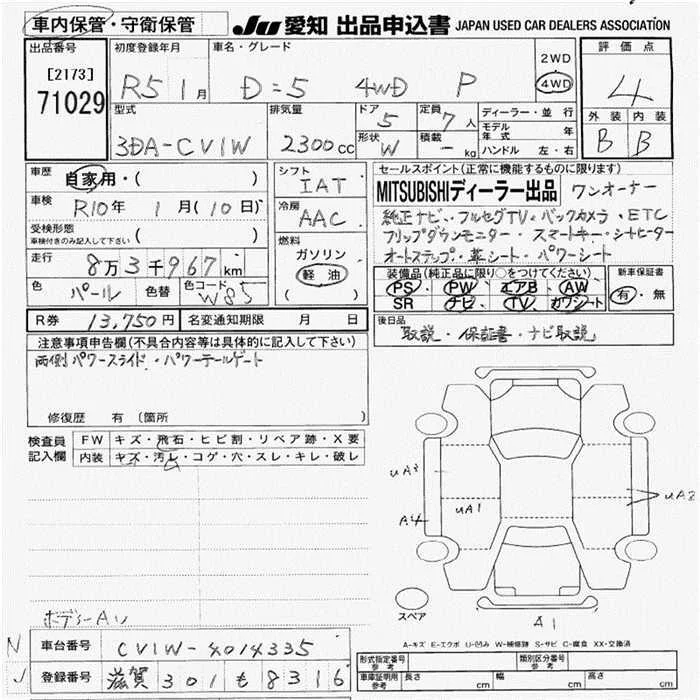 車内保管・守衛保管 JU 愛知 出品申込書 JAPAN USED CAR DEALERS ASSOCIATION
出品番号 初度登録年月 車名・グレード 2WD 4WD 評価点
[2173]
71029 R5 1月 D=5 4WD P 4
型式 排気量 ドア 定員 ディーラー・並行 外装 内装
3DA-CV1W 2300cc 5 7人 モデル年式 年 B B
形状 W 積載 - kg ハンドル 左・右
車歴 自家用・( ) シフト IAT セールスポイント(正常に機能するものに限ります)
MITSUBISHIディーラー出品 ワンオーナー
車検 R10年 1月(10日) 冷房 AAC
純正ナビ・フルセグTV・バックカメラ・ETC
受検形態 車検付きのみ記入して下さい ( )
フリップダウンモニター・スマートキー・シートヒーター
燃料 ガソリン 軽油 ( )
オートステップ・革シート・パワーシート
走行 8万3千967km
装備品(純正品に限り○をつけてください) 新車保証書
色 パール 色替 色コード W85
PS PW エアB AW 有・無
SR ナビ TV カワシート
R券 13,750円 名変通知期限 月 日
後日品
取説・保証書・ナビ取説
注意事項申告欄(不具合内容等は具体的に記入して下さい)
両側パワースライド・パワーテールゲート
修復歴 有 (箇所 )
検査員記入欄 FW キズ・飛石・ヒビ割・リペア跡・X要
内装 キズ・汚レ・コゲ・穴・スレ・キレ・破レ
uA3
A4
uA1
uA2
スペア
A1
A-キズ E-エクボ U-凹み W-補修跡 S-サビ C-腐食 XX-交換済
N 車台番号 CV1W-4014335
形式指定番号 参考 類別区分番号 参考
J 登録番号 滋賀 301 も 8316
車庫証明用 参考 長さ cm 幅 cm 高さ cm